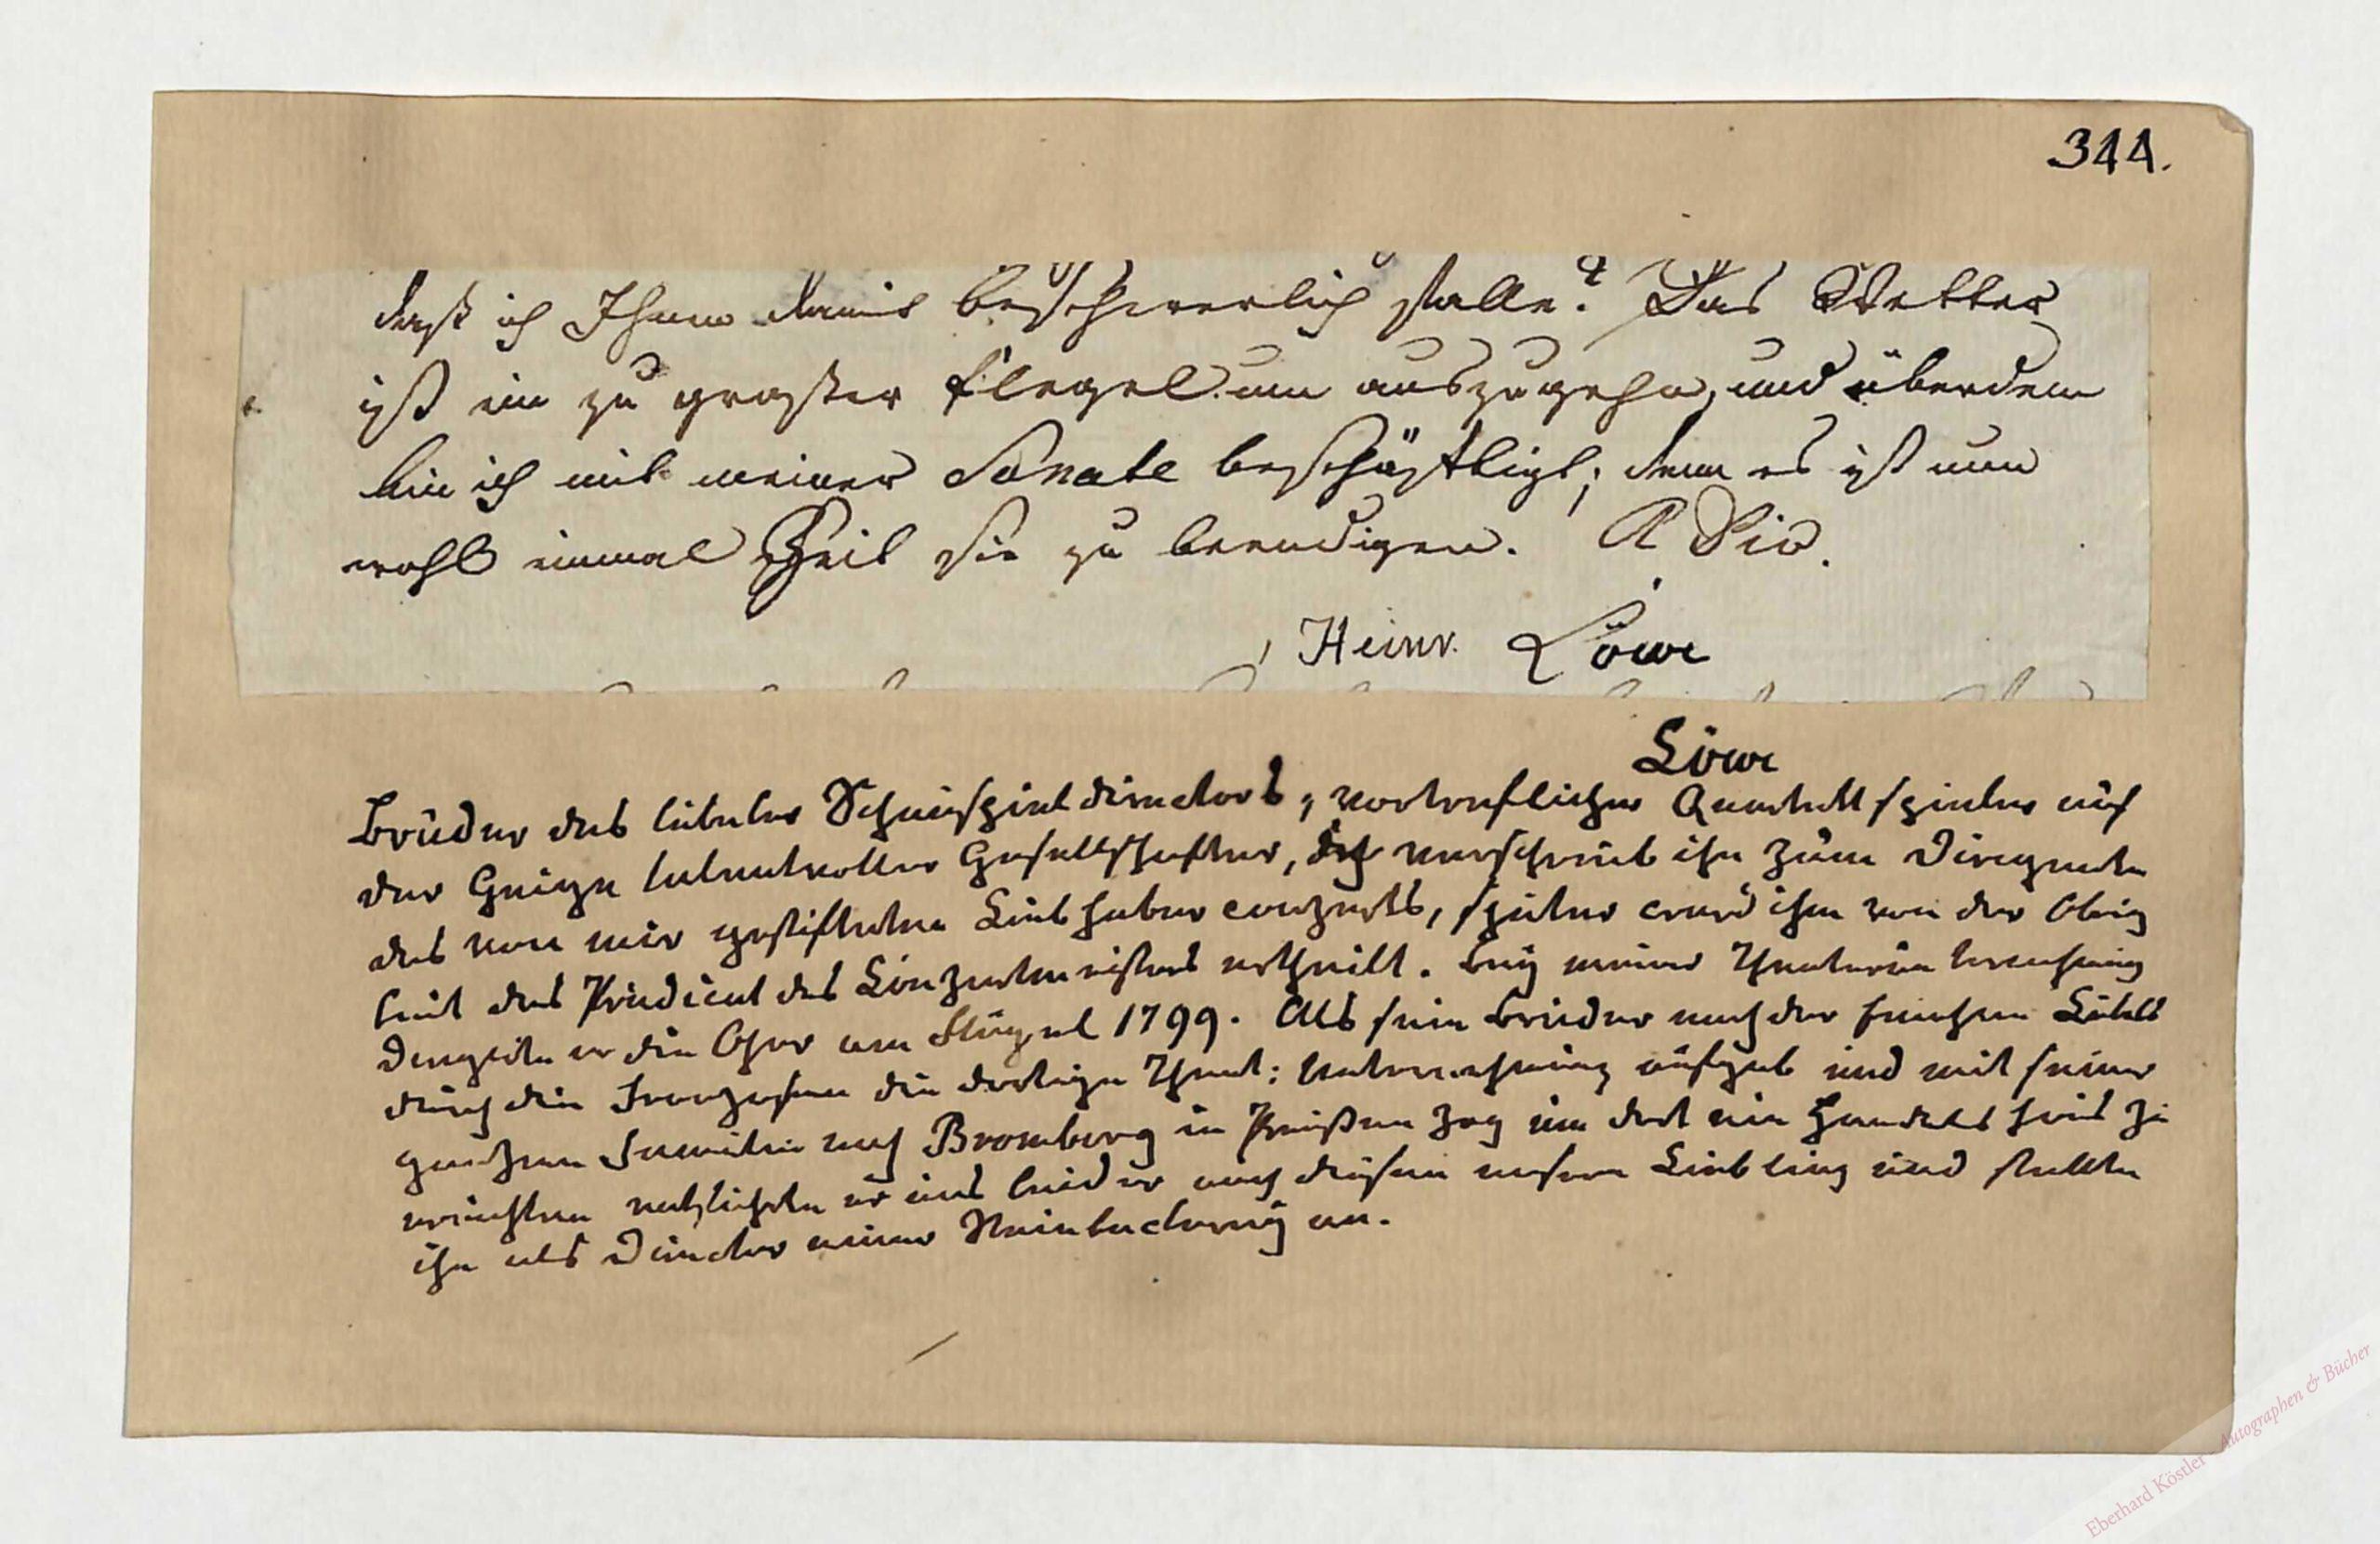 344.
daß ich Ihnen damit beschwerlich falle? Das Wetter
ist ein zu großer Flegel um auszugehn, und überdem
bin ich mit meiner Sonate beschäftligt; denn es ist nun
wohl einmal Zeit sie zu beendigen. A Dio.
Heinr. Löwe
Löwe
Bruder des lübeker Schauspieldirectors, vortreflicher Quartettspieler auf
der Geige talentvoller Gesellschafter, ich verschrieb ihn zum Dirigenten
des von mir gestifteten Liebhaberconzerts, später ward ihm von der Obrig
keit das Prädicat des Conzertmeisters ertheilt. Bey meiner Theaterunternehmung
dirigirte er die Oper am Flügel 1799. Als sein Bruder nach der Lübeks
durch die Franzosen die dortige Theat: Unternehmung aufgab und mit seiner
ganzen Familie nach Bromberg in Preußen zog um dort ein Handelshaus zu
errichten er uns leider auch diesen unsern Liebling und stellte
ihn als Director einer an.
Eberhard Köstler Autographen & Bücher